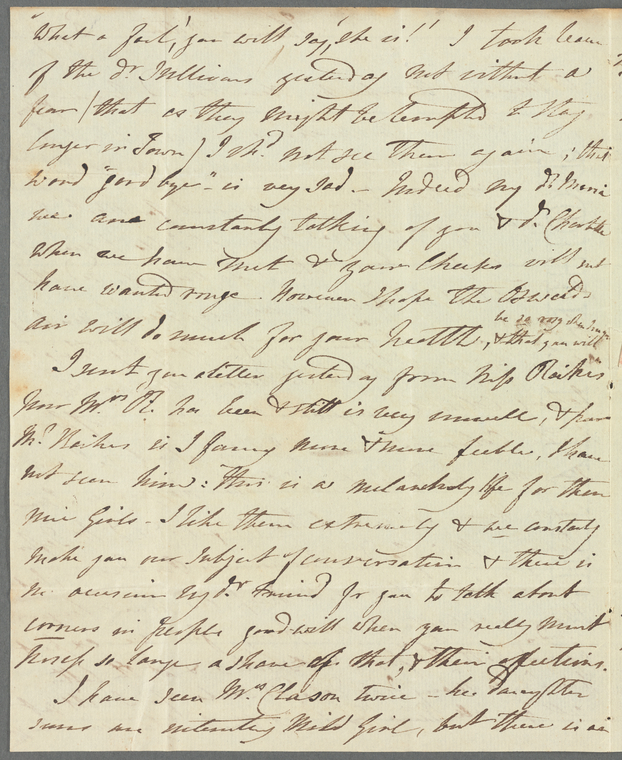 What a fool, you will say, she is!! I took leave
of the dr Sullivans yesterday not without a
fear (that as they might be tempted to stay
longer in Town) I shd not see them again; this
word "good bye" is very sad - Indeed my dr Maria
we are constantly talking of you & dr
when we have met & your Cheeks will not
have wanted rouge. However I hope the
be so very
air will do much for your health, & that you will
I sent you a letter yesterday from Miss Raikes.
Poor Mrs R. has been & still is very unwell, & poor
Mr Raikes is I fancy more & more feeble, I have
not seen him: this is a melancholy life for them
nice Girls - I like them extremely & we constantly
make you our Subject of conversation & there is
no occasion my dr Friend for you to talk about
corners in people's good-will when you really must
possess so large a share of that, & their affections.
I have seen Mrs Clason twice - her daughter
seems an interesting Mild Girl, but there is an